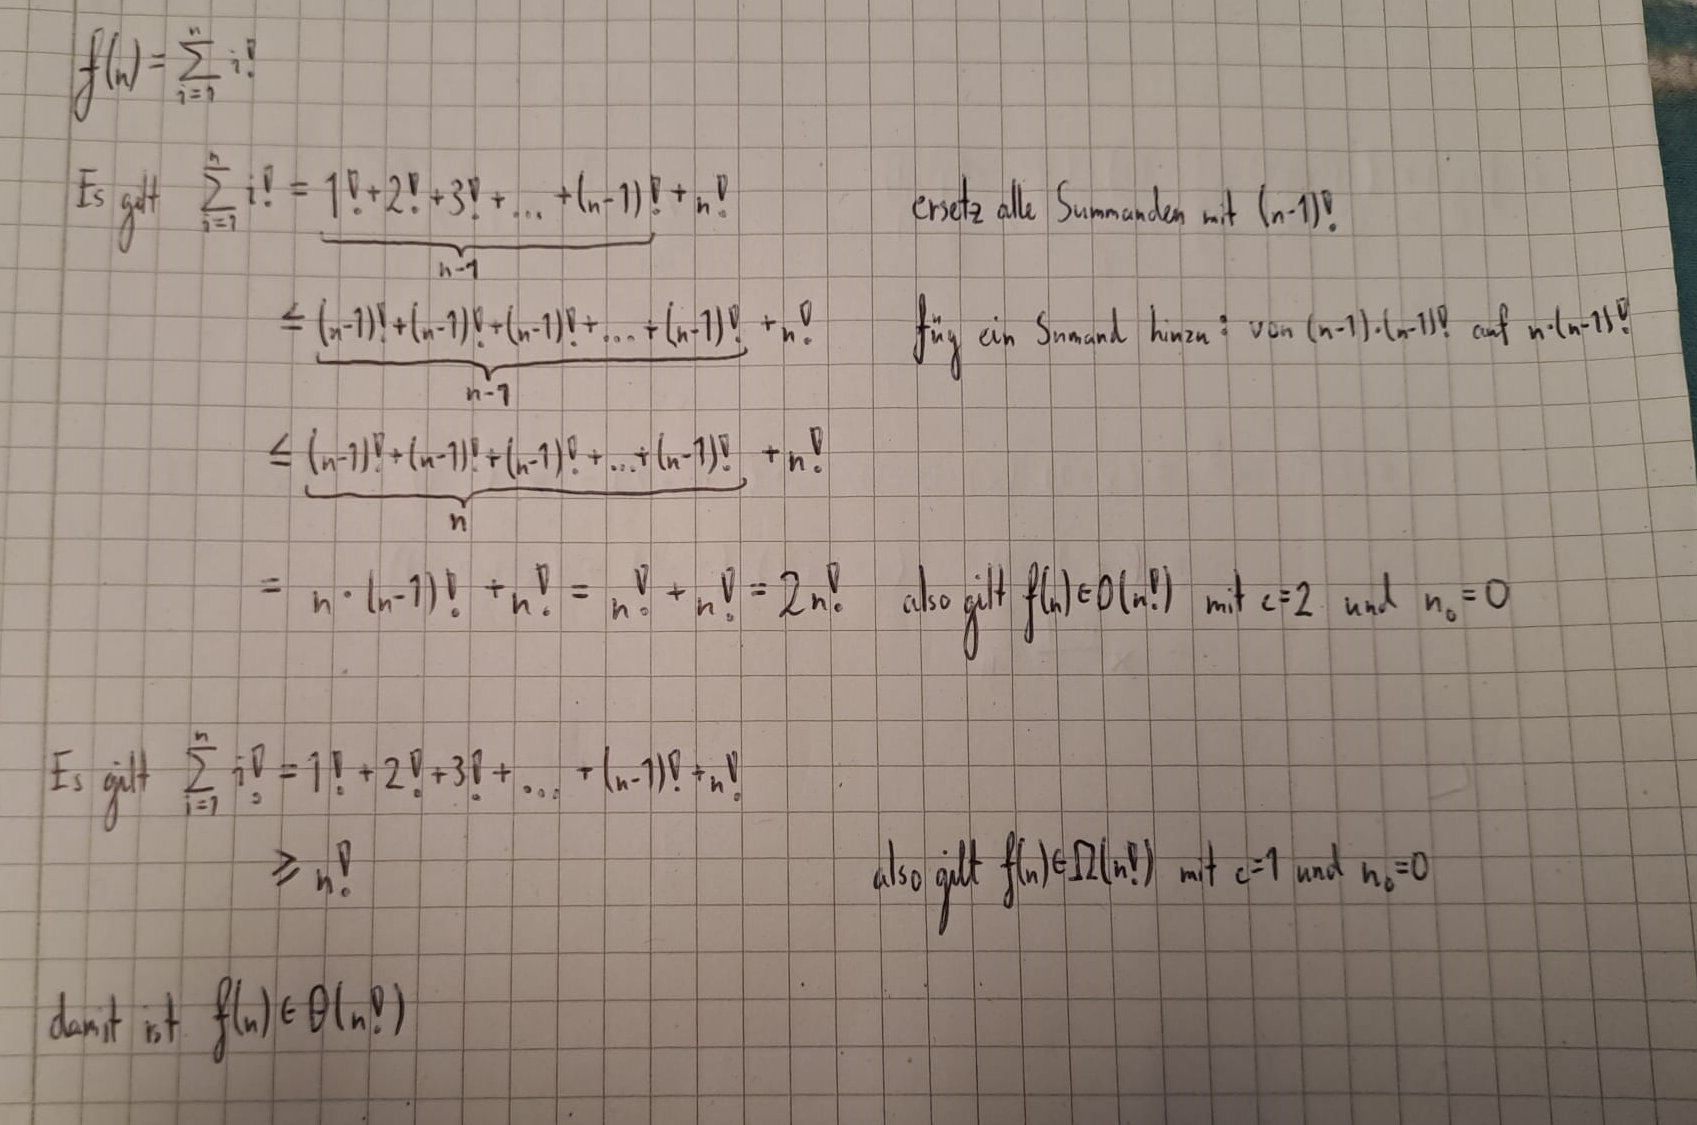 f(n) = \sum_{i=1}^{n} i!
Es gilt \sum_{i=1}^{n} i! = 1! + 2! + 3! + ... + (n-1)! + n! ersetz alle Summanden mit (n-1)!
n-1
≤ (n-1)! + (n-1)! + (n-1)! + .... + (n-1)! + n! füg ein Sumand hinzu: von (n-1)·(n-1)! auf n·(n-1)!
n-1
≤ (n-1)! + (n-1)! + (n-1)! + ... + (n-1)! + n!
n
= n · (n-1)! + n! = n! + n! = 2n! also gilt f(n) ∈ O(n!) mit c=2 und n₀=0
Es gilt \sum_{i=1}^{n} i! = 1! + 2! + 3! + ... + (n-1)! + n!
≥ n! also gilt f(n) ∈ Ω(n!) mit c=1 und n₀=0
damit ist f(n) ∈ Θ(n!)